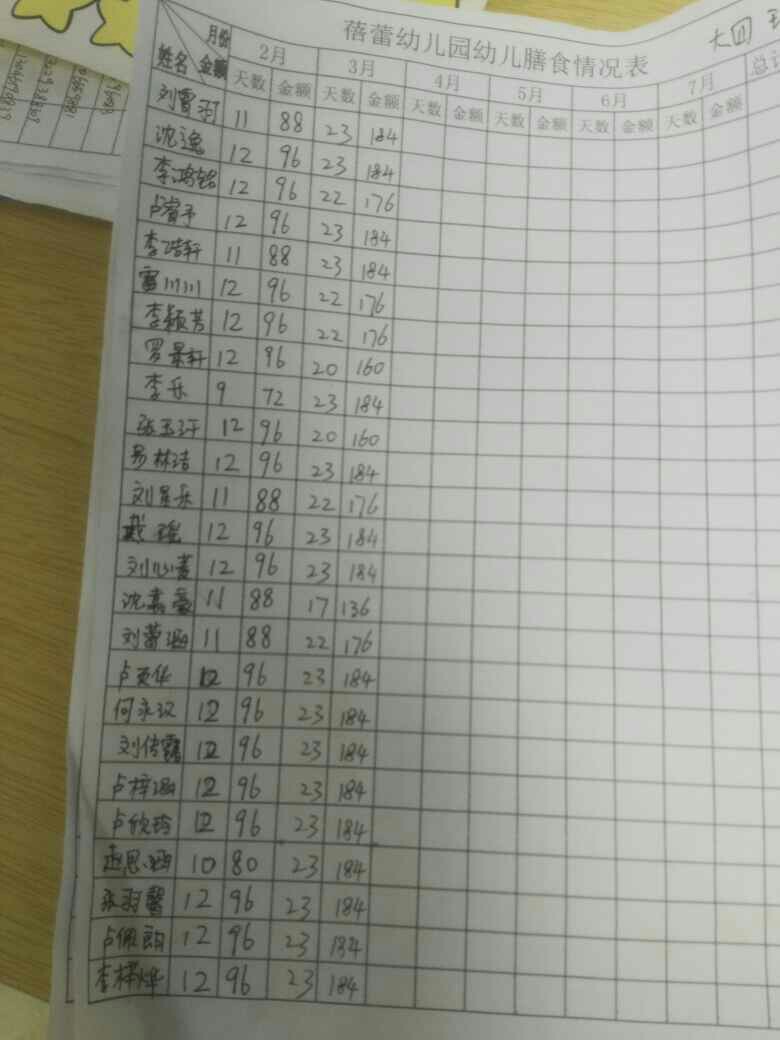 蓓蕾幼儿园幼儿膳食情况表
大四
月份 2月 3月 4月 5月 6月 7月
姓名 金额 天数 金额 天数 金额 天数 金额 天数 金额 天数 金额 天数 金额
刘雪 11 88 23 184
沈逸 12 96 23 184
李鸿铭 12 96 22 176
卢睿予 12 96 23 184
李浩轩 11 88 23 184
雷川川 12 96 22 176
李颖芳 12 96 22 176
罗景轩 12 96 20 160
李乐 9 72 23 184
张玉汗 12 96 20 160
易林洁 12 96 23 184
刘星乐 11 88 22 176
戴瑶 12 96 23 184
刘心 12 96 23 184
沈嘉豪 11 88 17 136
刘蕾涵 11 88 22 176
卢英华 12 96 23 184
何永汉 12 96 23 184
刘传露 12 96 23 184
卢梓涵 12 96 23 184
卢欣玲 12 96 23 184
赵思涵 10 80 23 184
张羽馨 12 96 23 184
卢佩韵 12 96 23 184
李梓烨 12 96 23 184